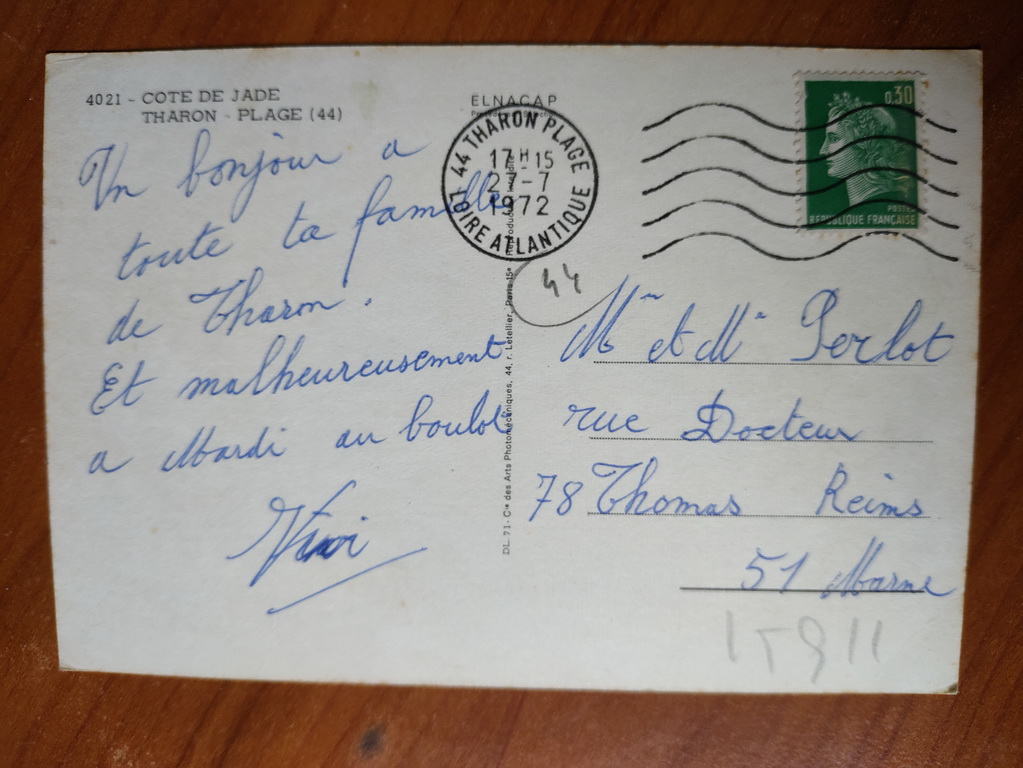 4021 - COTE DE JADE
THARON - PLAGE (44)
ELNACAP
44 THARON PLAGE
17H15
27-7
1972
LOIRE ATLANTIQUE
0,30
POSTES
REPUBLIQUE FRANÇAISE
Un bonjour a
toute ta famille
de Tharon.
Et malheureusement
a Mardi au boulot
DL. 71 - Cie des Arts Photomécaniques, 44, r. Letellier, Paris 15e - Reproduction
44
Mr et Mme Perlot
rue Docteur
78 Thomas Reims
51 Marne